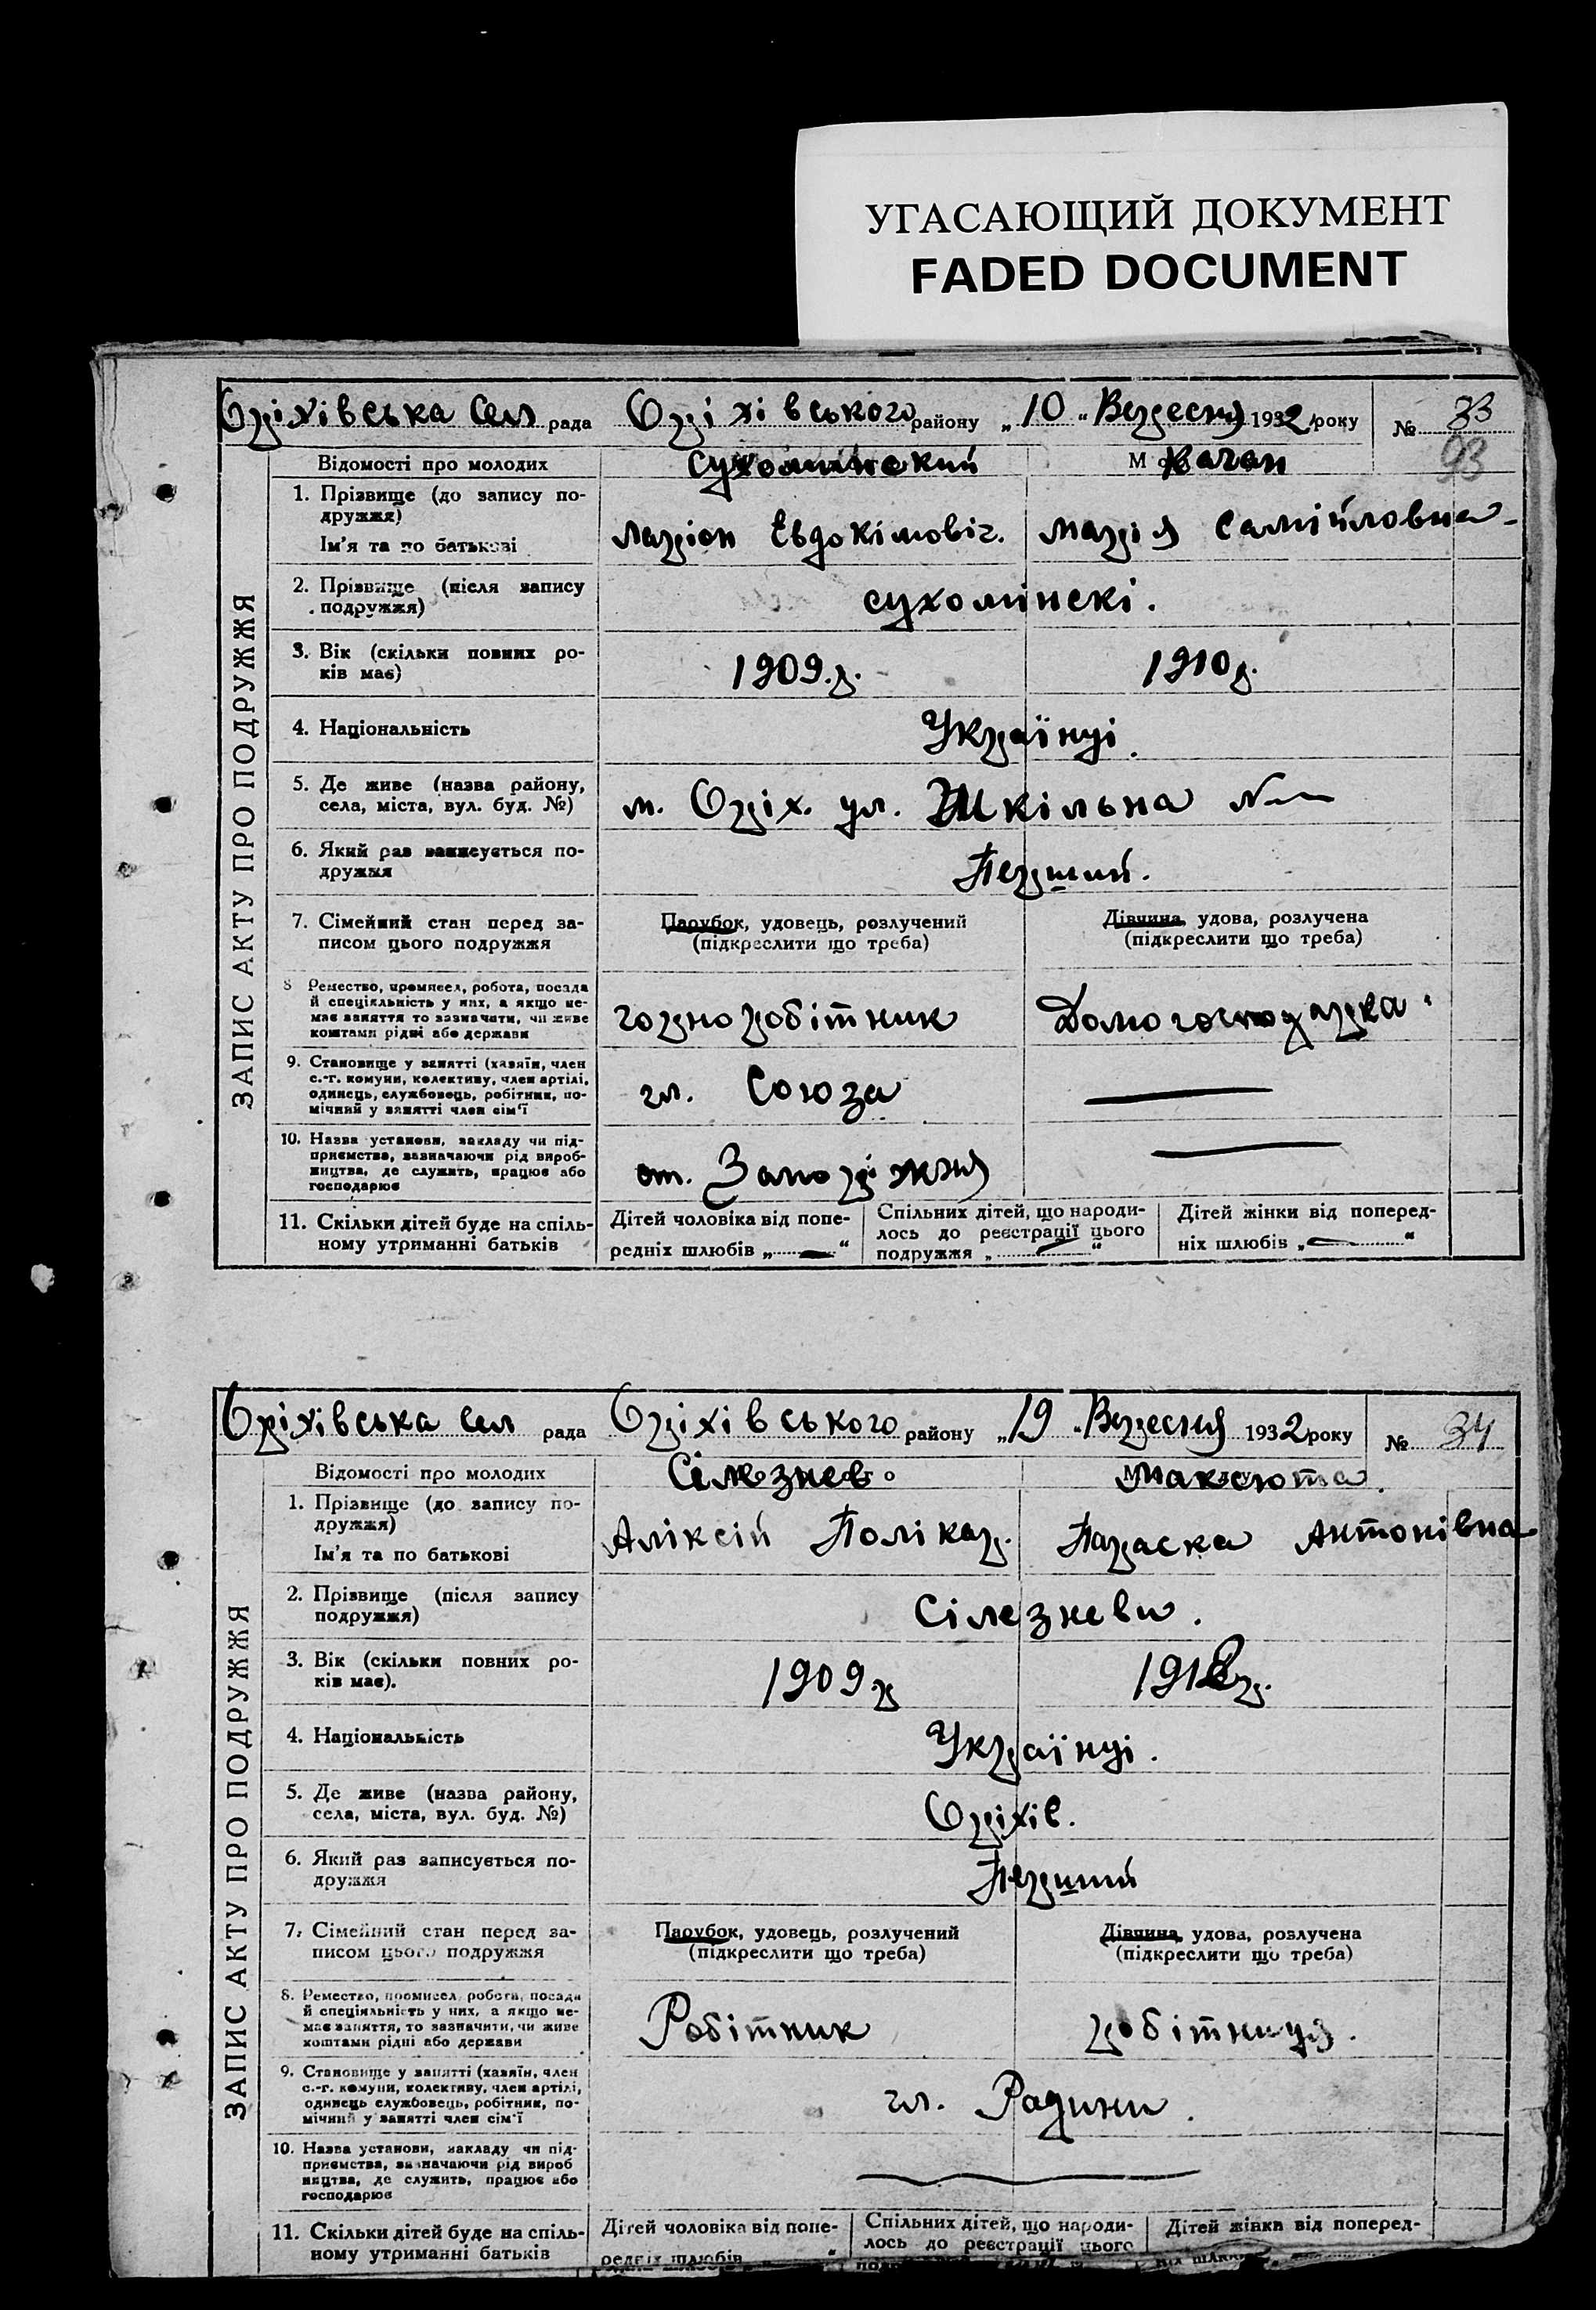 УГАСАЮЩИЙ ДОКУМЕНТ
FADED DOCUMENT
Оріхівська Сел рада Оріхівського району „10“ Вересня 1932 року № 33
93
ЗАПИС АКТУ ПРО ПОДРУЖЖЯ
Відомості про молодих Сухомлинский Качан
1. Прізвище (до запису по-
дружжя)
Ім'я та по батькові Ларіон Евдокімовіч. Марія Самійловна
2. Прізвище (після запису
подружжя) сухомінскі.
3. Вік (скільки повних ро-
ків має) 1909.р. 1910р.
4. Національність Українці.
5. Де живе (назва району,
села, міста, вул. буд. №) м. Оріх. ул. Шкільна №
6. Який раз записується по-
дружжя Перший.
7. Сімейний стан перед за-
писом цього подружжя
Парубок, удовець, розлучений
(підкреслити що треба)
Дівчина, удова, розлучена
(підкреслити що треба)
8 Ремество, промисел, робота, посада
й спеціяльність у них, а якщо не-
має заняття то зазначити, чи живе
коштами рідні або держави
горноробітник Домогосподарка
9. Становище у занятті (хазяїн, член
с.-г. комуни, колективу, член артілі,
одинець, службовець, робітник, по-
мічний у занятті член сім'ї
чл. Союза
10. Назва установи, закладу чи під-
приємства, зазначаючи рід вироб-
ництва, де служить, працює або
господарює
ст. Запоріжжя
11. Скільки дітей буде на спіль-
ному утриманні батьків
Дітей чоловіка від попе-
редніх шлюбів „ — “
Спільних дітей, що народи-
лось до реєстрації цього
подружжя „ — “
Дітей жінки від поперед-
ніх шлюбів „ — “
Оріхівська Сел рада Оріхівського району „19“ Вересня 1932 року № 34
ЗАПИС АКТУ ПРО ПОДРУЖЖЯ
Відомості про молодих Сілезнев Максюта.
1. Прізвище (до запису по-
дружжя)
Ім'я та по батькові Аліксій Полікар. Параска Антонівна
2. Прізвище (після запису
подружжя) Сілезневи.
3. Вік (скільки повних ро-
ків має). 1909р 1912р.
4. Національність Українці.
5. Де живе (назва району,
села, міста, вул. буд. №) Оріхів.
6. Який раз записується по-
дружжя Перший
7. Сімейний стан перед за-
писом цього подружжя
Парубок, удовець, розлучений
(підкреслити що треба)
Дівчина, удова, розлучена
(підкреслити що треба)
8. Ремество, промисел, робота, посада
й спеціяльність у них, а якщо не-
має заняття, то зазначити, чи живе
коштами рідні або держави
Робітник робітниця.
9. Становище у занятті (хазяїн, член
с.-г. комуни, колективу, член артілі,
одинець службовець, робітник, по-
мічний у занятті член сім'ї
чл. Родини.
10. Назва установи, закладу чи під-
приємства, зазначаючи рід вироб
ництва, де служить, працює або
господарює
11. Скільки дітей буде на спіль-
ному утриманні батьків
Дітей чоловіка від попе-
редніх шлюбів
Спільних дітей, що народи-
лось до реєстрації цього
Дітей жінки від поперед-
ніх шлюбів